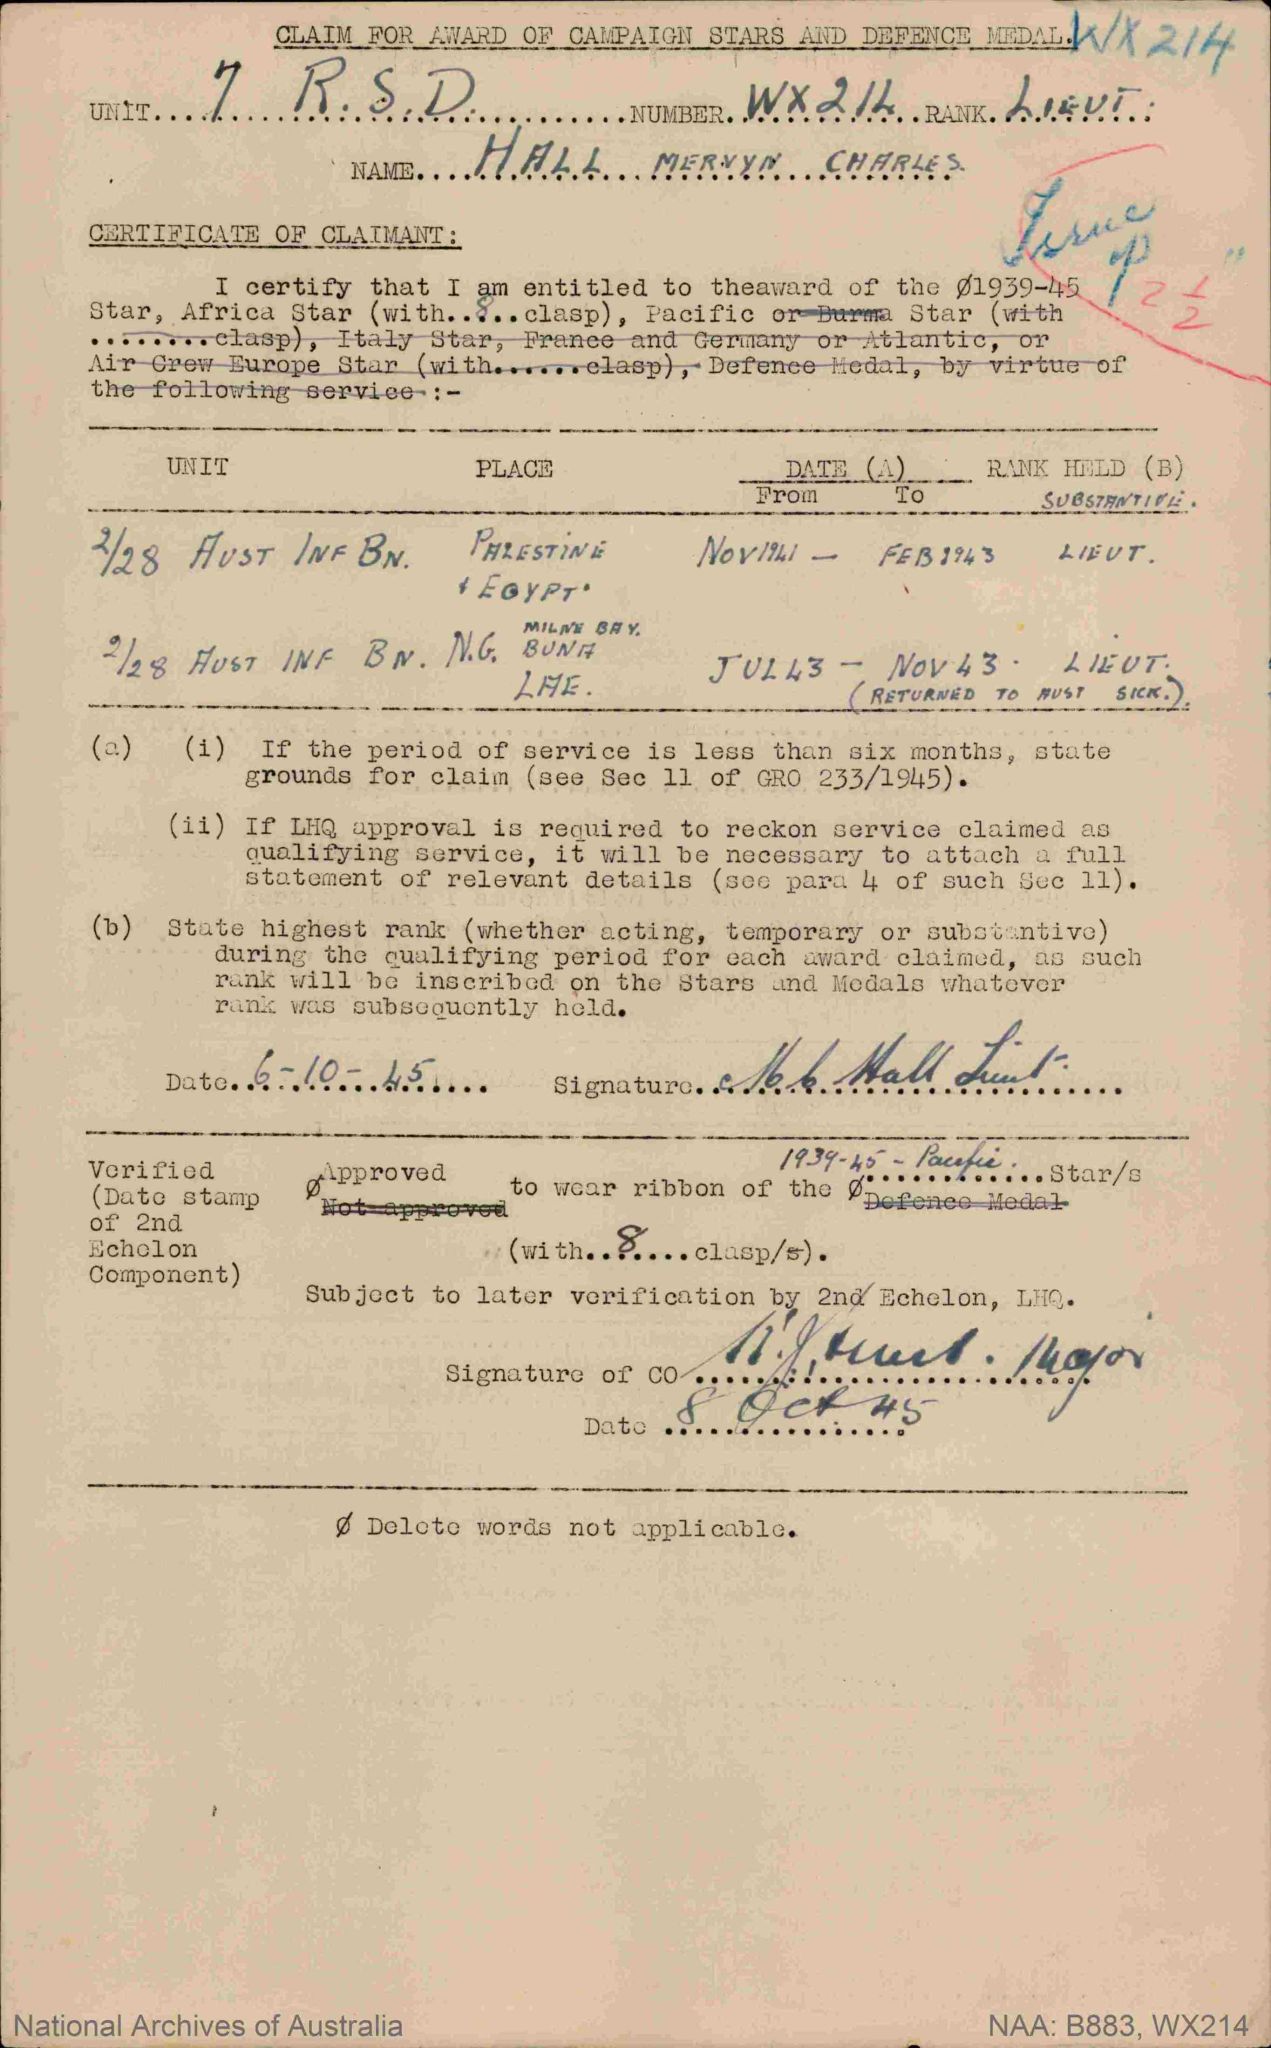 CLAIM FOR AWARD OF CAMPAIGN STARS AND DEFENCE MEDAL. WX 214
UNIT....7 R.S.D...........NUMBER. WX214 RANK. LIEUT.
NAME.... HALL MERVYN CHARLES.
CERTIFICATE OF CLAIMANT:
Issue
2 1/2"
I certify that I am entitled to theaward of the Ø1939-45
Star, Africa Star (with..8...clasp), Pacific or Burma Star (with
........clasp), Italy Star, France and Germany or Atlantic, or
Air Crew Europe Star (with......clasp), Defence Medal, by virtue of
the following service :-
UNIT PLACE DATE (A) RANK HELD (B)
From To SUBSTANTIVE.
2/28 AUST INF BN. PALESTINE NOV 1941 — FEB 1943 LIEUT.
& EGYPT.
MILNE BAY.
2/28 AUST INF BN. N.G. BUNA JUL 43 — NOV 43. LIEUT.
LAE. (RETURNED TO AUST SICK.)
(a) (i) If the period of service is less than six months, state
grounds for claim (see Sec 11 of GRO 233/1945).
(ii) If LHQ approval is required to reckon service claimed as
qualifying service, it will be necessary to attach a full
statement of relevant details (see para 4 of such Sec 11).
(b) State highest rank (whether acting, temporary or substantive)
during the qualifying period for each award claimed, as such
rank will be inscribed on the Stars and Medals whatever
rank was subsequently held.
Date. 6-10-45 Signature. M C Hall Lieut.
Verified Approved 1939-45 - Pacific. Star/s
(Date stamp Ø to wear ribbon of the Ø
of 2nd Not approved Defence Medal
Echelon (with..8....clasp/s).
Component)
Subject to later verification by 2nd Echelon, LHQ.
Signature of CO Major
Date 8 Oct 45
Ø Delete words not applicable.
National Archives of Australia NAA: B883, WX214